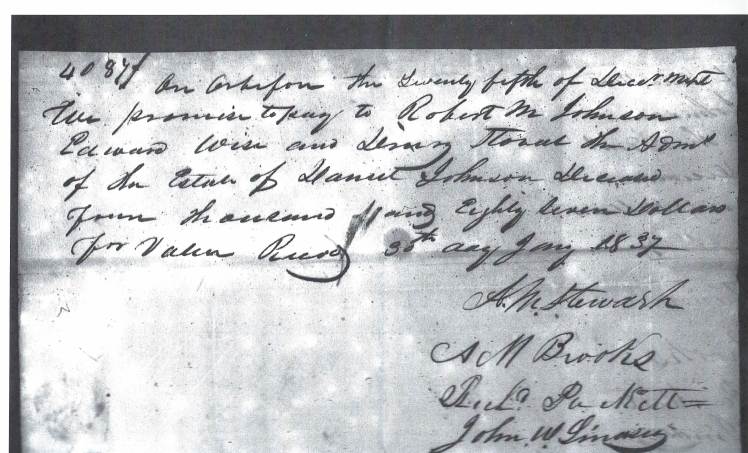 4087$
On or before the twenty fifth of Decr. next
We promise to pay to Robert M Johnson
Edward Wise and Henry the Admr
of the Estate of Daniel Johnson Deceased
four thousand and Eighty Seven Dollars
for Value Recvd 30th day Jany 1837
A. M. Stewart
A M Brooks
Richd.
John W Linsey